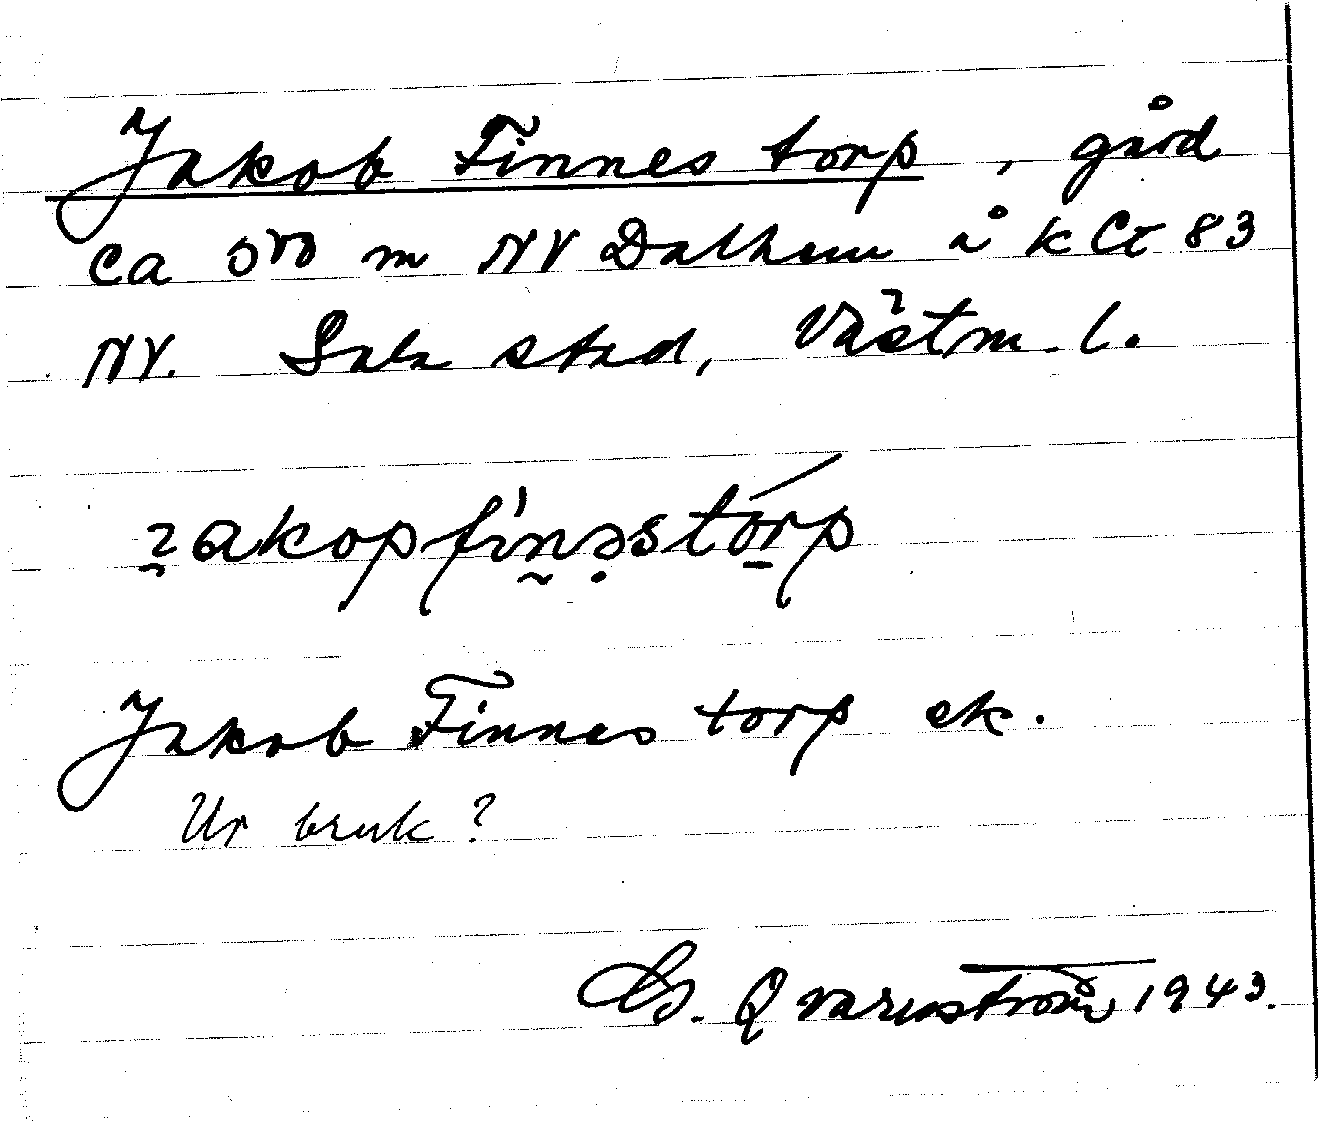 Jakob Finnes torp, gård
ca 500 m NV Dalhem å k Ct 83
NV. Sala stad, Västm. l.
jakopfinəstórp
Jakob Finnes torp ek.
Ur bruk?
G. Qvarnström 1943.